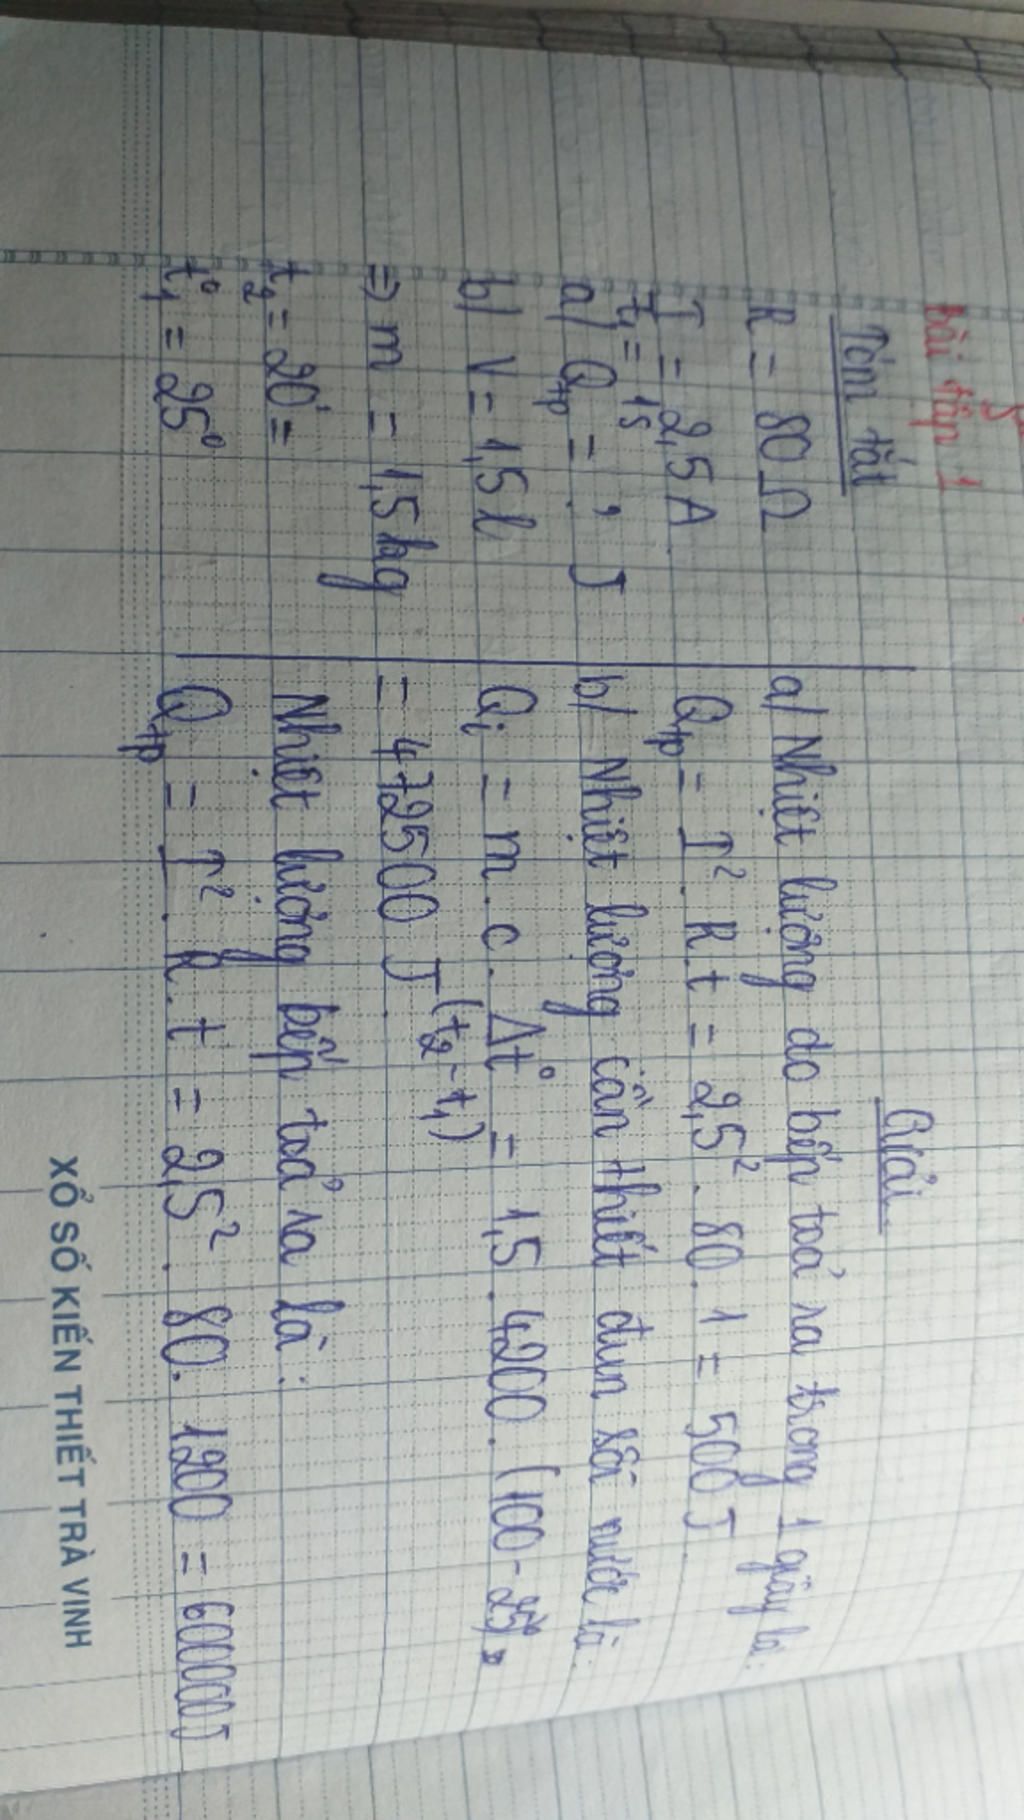 bài tập 1
Tóm tắt
R = 80 Ω
I = 2,5 A
t₁ = 1s
a/ Qtp = ? J
b/ V = 1,5 l
=> m = 1,5 kg
t₂ = 20' =
t₁° = 25°
Giải
a/ Nhiệt lượng do bếp toả ra trong 1 giây là:
Qtp = I². R.t = 2,5². 80. 1 = 500 J
b/ Nhiệt lượng cần thiết đun sôi nước là:
Qi = m . c . Δt° = 1,5 . 4200 . (100 - 25)
(t₂ - t₁)
= 472500 J
Nhiệt lượng bếp toả ra là:
Qtp = I². R. t = 2,5² . 80. 1200 = 600000J
XỔ SỐ KIẾN THIẾT TRÀ VINH